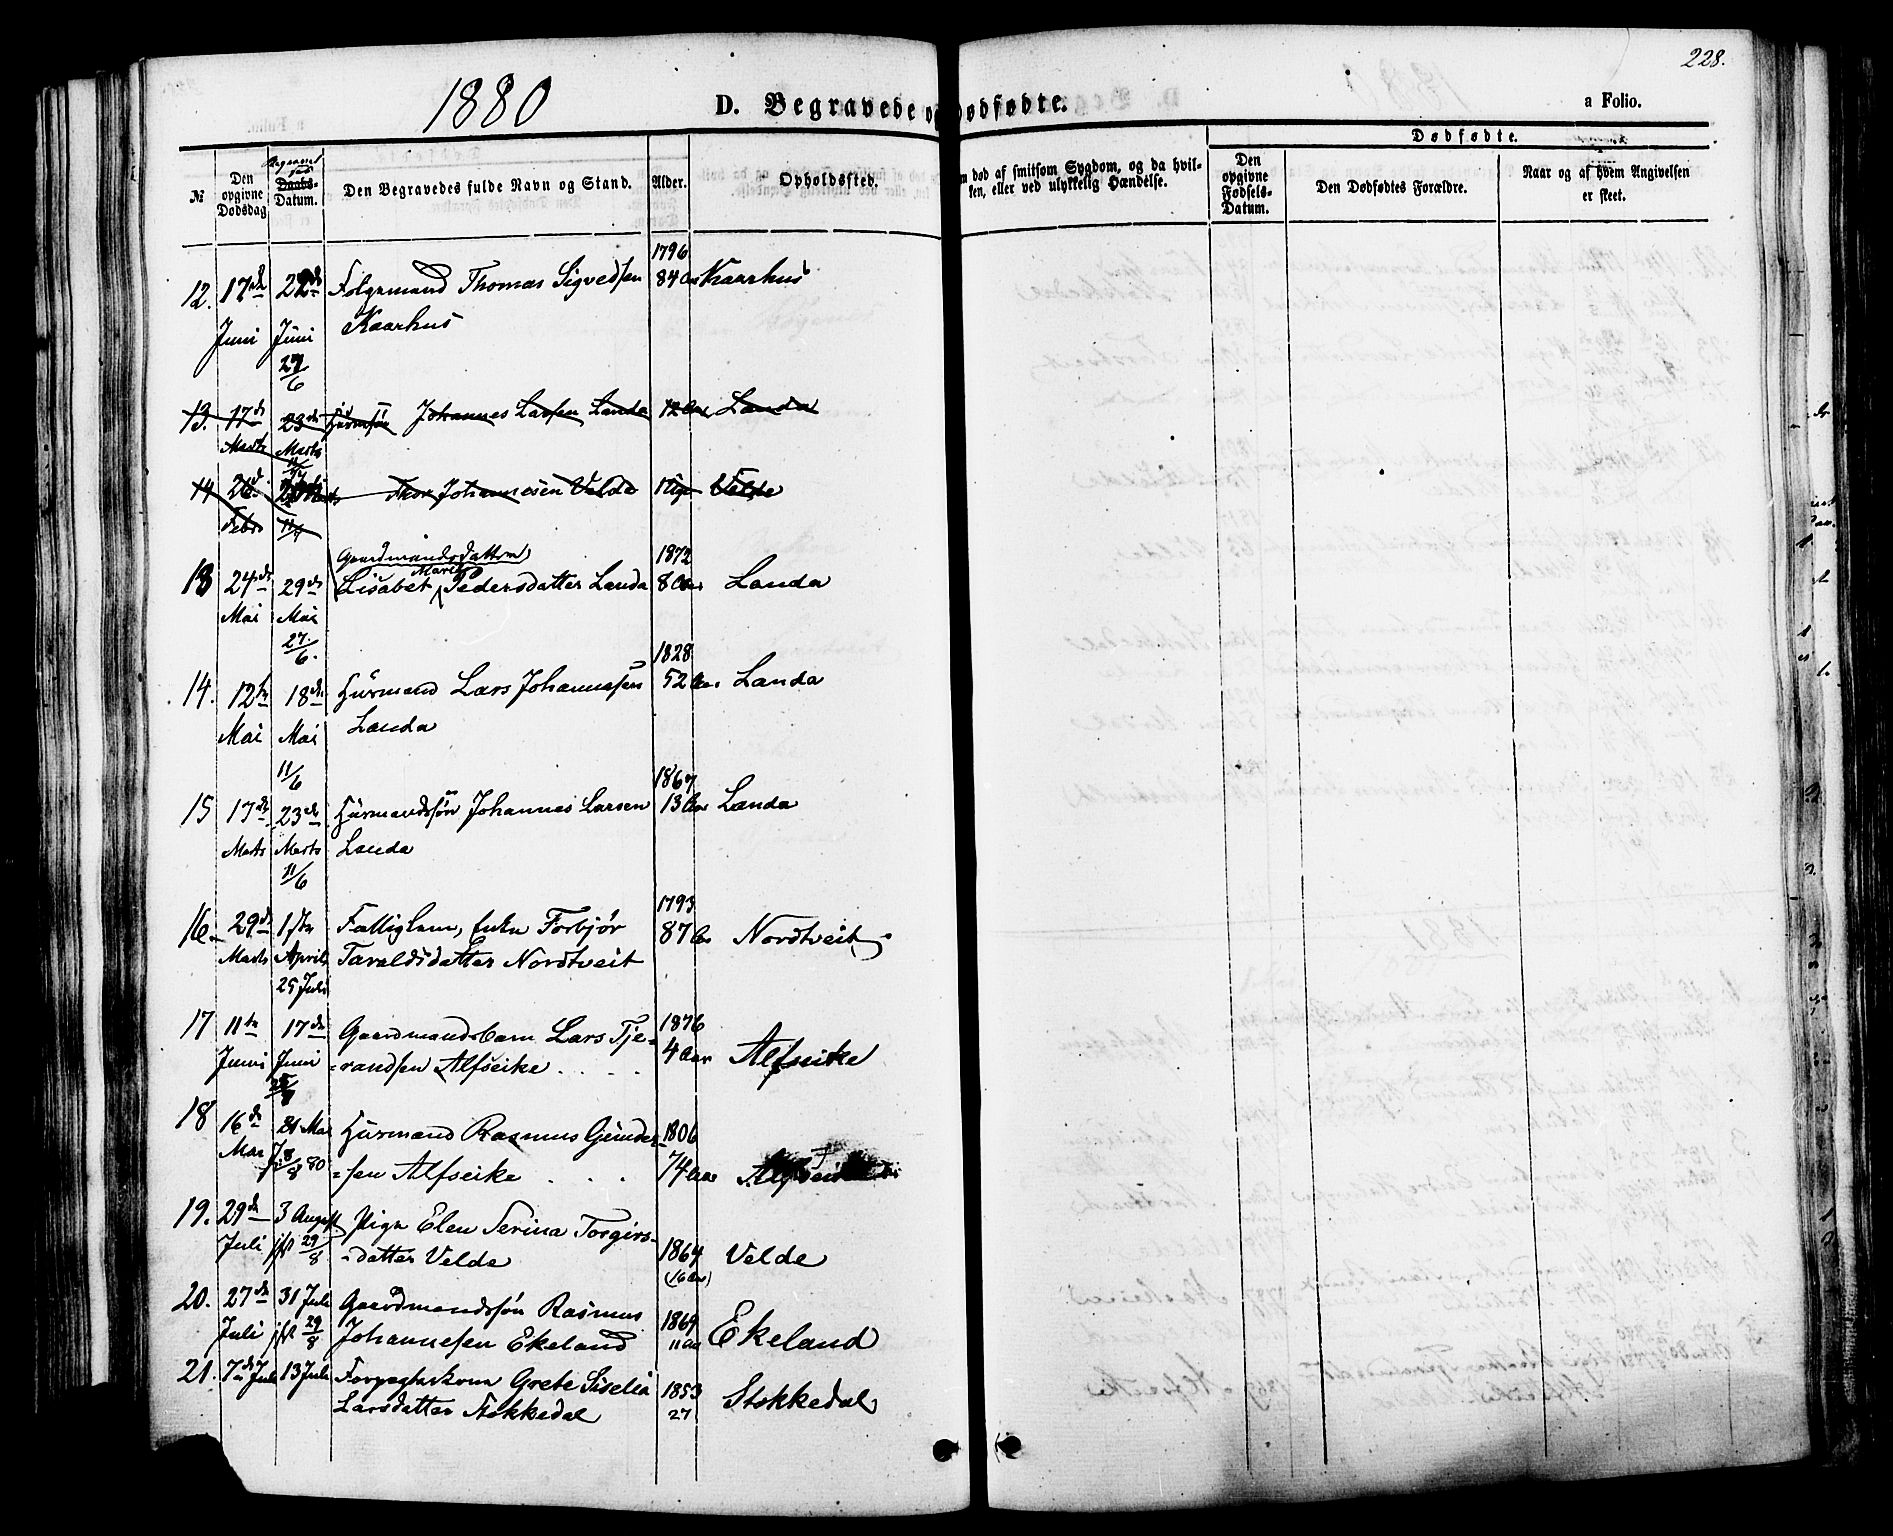 228.
1880
D. Begravede og Dødfødte.
a Folio.
№
Den opgivne Dødsdag
Begravet
Daabs-Datum.
Den Begravedes fulde Navn og Stand.
Alder.
Opholdssted.
død af smitsom Sygdom, og da hvil-
ken, eller ved ulykkelig Hændelse.
Dødfødte.
Den opgivne Fødsels-Datum.
Den Dødfødtes Forældre.
Naar og af hvem Angivelsen er skeet.
1796
12. 17de 22de Folgemand Thomas Sigvedsen 84 Aar Kaarhus
Juni Juni Kaarhus
27/6
13. 17de 23de Johannes Larsen Landa 12 Aar Landa
Marts Marts
11/6
14 26de Thor Johannesen Velde Velde
Febr
Gaardmandsdatter 1872
13 24de 29de Lisabet Marie Pedersdatter Landa 8 Aar Landa
Mai Mai
27/6. 1828
14. 12te 18de Husmand Lars Johannesen 52 Aar Landa
Mai Mai Landa
11/6 1867
15 17de 23de Husmandssøn Johannes Larsen 13 Aar Landa
Marts Marts Landa
11/6 1793
16. 29de 1ste Fattiglem, Enke Torbjør 87 Aar Nordtveit
Marts April Taraldsdatter Nordtveit
25 Juli
17 11te 17de Gaardmandsbarn Lars Tje- 1876
Juni Juni randsen Alfseike 4 Aar Alfseike
18 16de 21 Mai Husmand Rasmus Gunder- 1806
Mai 8/8 80 sen Alfseike 74 Aar Alfseike
19. 29de 3 August Pige Elen Serina Torgirs-
Juli jfl 29/8 datter Velde 1864 Velde
(16 Aar)
20. 27de 31 Juli Gaardmandssøn Rasmus 1869
Juli jfl 29/8 Johannesen Ekeland 11 Aar Ekeland
21. 7de Juli 13 Juli Forpagterkone Grete Siselia 1853
Larsdatter Stokkedal 27 Stokkedal